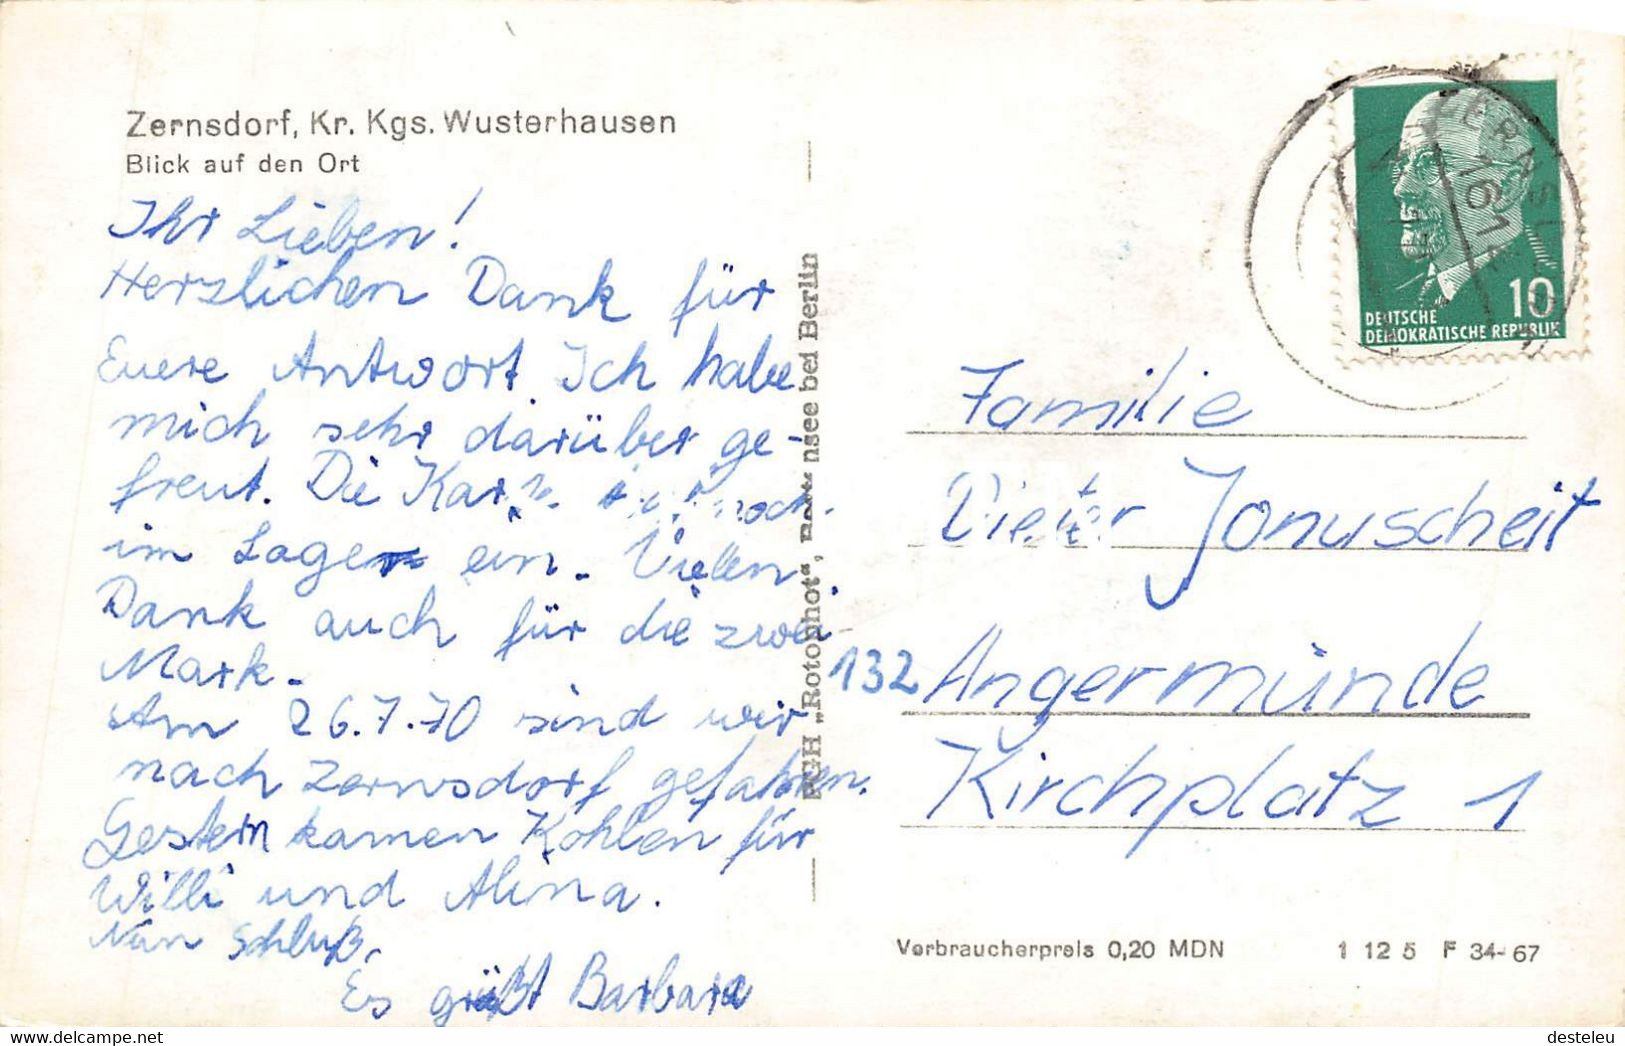 Zernsdorf, Kr. Kgs. Wusterhausen
Blick auf den Ort
Ihr Lieben!
Herzlichen Dank für
Euere Antwort. Ich habe
mich sehr darüber ge-
freut. Die Karte noch
im Lager ein. Vielen
Dank auch für die zwei
Mark.
Am 26.7.70 sind wir
nach Zernsdorf gefahren.
Gestern kamen Kohlen für
Willi und Alina.
Nun Schluß.
Es grüßt Barbara
PGH „Rotophot“, nsee bei Berlin
DEUTSCHE
DEMOKRATISCHE REPUBLIK
10
1612
Familie
Dieter Jonuscheit
132 Angermünde
Kirchplatz 1
Verbraucherpreis 0,20 MDN 1 12 5 F 34-67
delcampe.net
desteleu